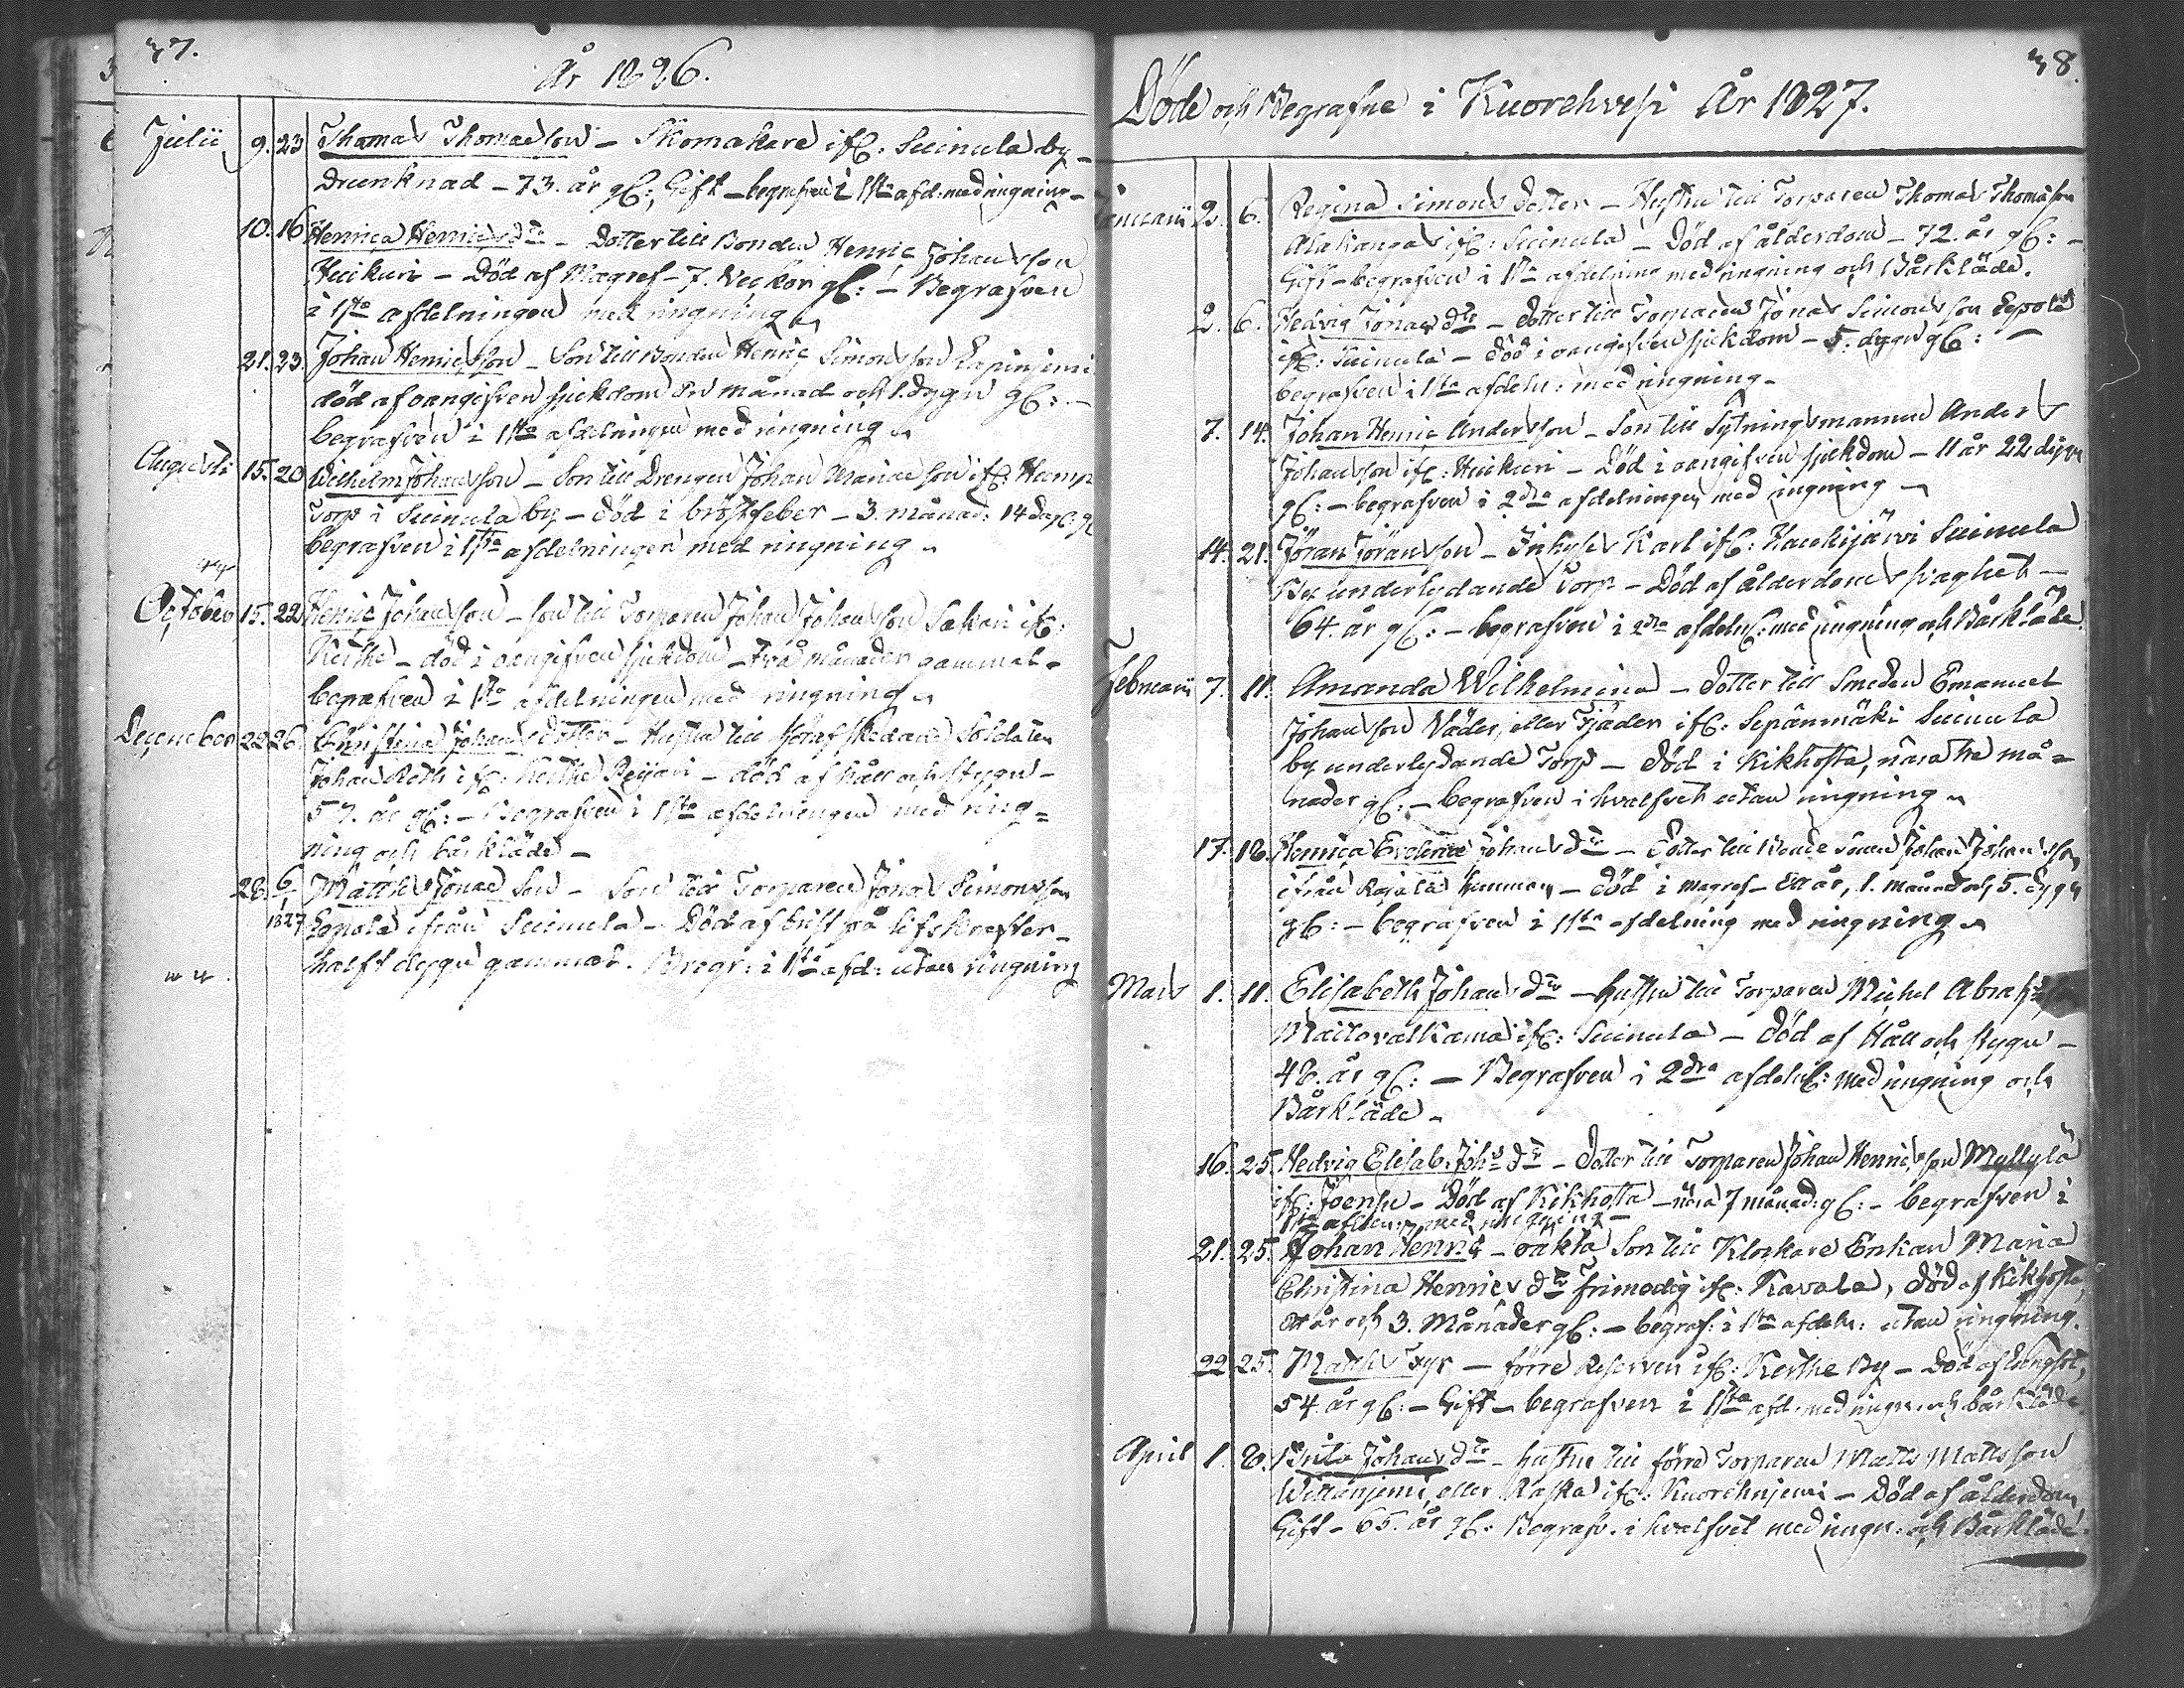 37.
År 1826.
Julii 9. 23 Thomas Thomasson – Skomakare ifr: Suinula by –
Drunknad – 73. år gl:, Gift – begrafven i 1sta afd. med ringning –
10. 16 Henrica Henricsdtr – Dotter till Bonden Henric Johansson
Huikuri – Död af Magref – 7. Veckor gl: – Begrafven
i 1sta afdelningen med ringning
21. 23. Johan Henricsson – Son till Bonden Henric Simonsson
död af oangifven sjukdom En månad och 1. dygn gl: –
begrafven i 1sta afdelningen med ringning
Augusti 15. 20 Wilhelm Johansson – Son till Drengen Johan ifr: Hemp
Torp i Suinula by – död i bröstfeber – 3. månad: 14 dag: gl
begrafven i 1sta afdelningen med ringning
October 15. 22 Henric Johansson – son till Torparen Johan Johansson Sakari ifr:
Kerthe – död i oangifven sjukdom – två månader gammal –
begrafven i 1sta afdelningen med ringning
December 22 26 Christina Johans dotter – Hustru till afskedade Soldaten
Johan Roth ifr: Kerthe – död af håll och stygn –
57. år gl: – Begrafven i 1sta afdelningen med ring=
ning och bårkläde –
28. 6/1 1827 Matths Jonas Son – Son till Torparen Jonas Simonsson
Eepola ifrån Suinula – Död af brist på lifskrafter –
halft dygn gammal. Begr: i 1sta afd: utan ringning
38.
Döde och Begrafne i Kuorehvesi År 1827.
Januarii 2. 6. Regina Simons dotter – Hustru till Torparen Thomas Thomasson
Alakangas ifr: Suinula – Död af ålderdom – 72. år gl: –
Gift – begrafven i 1sta afdelning med ringning och Bårkläde.
2. 6. Hedvig Jonasdtr – Dotter till Torparen Jonas Simonsson Eepola
ifr: Suinula – Död i oangifven sjukdom – 5. dygn gl: –
begrafven i 1sta afdeln: med ringning –
7. 14. Johan Henric Andersson – Son till Sytningsmannen Anders
Johansson ifr: Huikuri – Död i oangifven sjukdom – 11 år 22 dygn
gl: – begrafven i 2dra afdelningen med ringning
14. 21. Jöran Jöransson – Inhyses Karl ifr: Haukijärvi Suinula
By underlydande Torp – Död af ålderdoms svaghet –
64. år gl: – begrafven i 2dra afdeln: med ringning och Bårkläde
Februarii 7. 11. Amanda Wilhelmina – dotter till Smeden Emanuel
Johansson Väder, eller Fjäder ifr: Sepänmäki Suinula
by underlydande Torp – Död i Kikhosta, nära tre må=
nader gl: – begrafven i hvalfvet utan ringning
17. 18. Henrica Evelina Johansdtr – Dotter till Bonde sonen Johan Johansson
ifrån Rajala hemman – död i magref – Ett år, 1. månad och 5. dygn
gl: – begrafven i 1sta afdelning med ringning
Mars 1. 11. Elisabeth Johansdtr – hustru till Torparen Michel
Maitovalkama ifr: Suinula – Död af Håll och stygn –
48. år gl: – Begrafven i 2dra afdeln: med ringning och
Bårkläde –
16. 25. Hedvig Elisab. Johs dtr – Dotter till Torparen Johan Henricsson Myllylä
ifr: Joensu – Död af Kikhosta – nära 7 månad: gl: – begrafven i
1sta afdeln: med ringning –
21. 25. Johan Henric – oäkta Son till Klockare Enkan Maria
Christina Henricsdtr Frimodig ifr: Kavala, död af Kikhosta,
ett år och 3. Månader gl: – begraf: i 1sta afdeln: utan ringning.
22. 25. Matths Fyr – förre Reserven ifr: Kerthe By – Död af Lungsot,
54 år gl: – Gift – begrafven i 1sta afd. med ringn. och bårkläde
April 1. 8. Brita Johansdtr – hustru till förre Torparen Matts Mattsson
eller Raska ifr: Kuorehnjemi – Död af ålderdom,
Gift – 65. år gl. Begrafv. i hvalfvet med ringn. och Bårkläde.